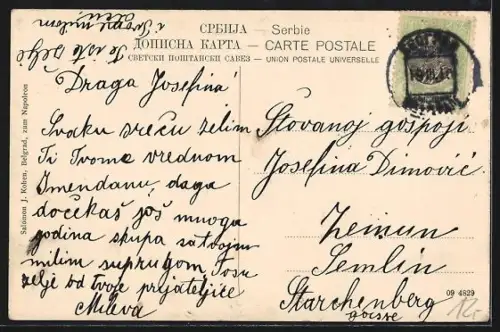 СРБИЈА - Serbie
ДОПИСНА КАРТА - CARTE POSTALE
СВЕТСКИ ПОШТАНСКИ САВЕЗ - UNION POSTALE UNIVERSELLE
Draga Josefina
Svaku sreću želim
Ti Tvome vrednom
Imendanu, daga
dočekaš još mnoga
godina skupa sa tvojim
milim suprugom
želje od tvoje prijateljice
Mileva
Štovanoj gospoji
Josefina Dimović
Zemun
Semlin
Starchenberg
gasse
Salamon J. Kohen, Belgrad, zum Napoleon
09 4829